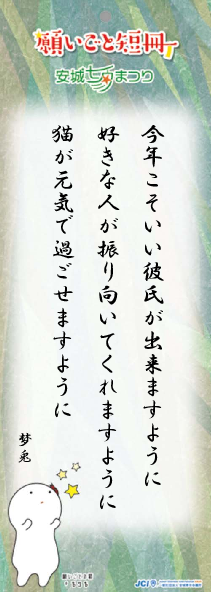 願いごと短冊
安城七夕まつり
今年こそいい彼氏が出来ますように
好きな人が振り向いてくれますように
猫が元気で過ごせますように
梦兎
JCI